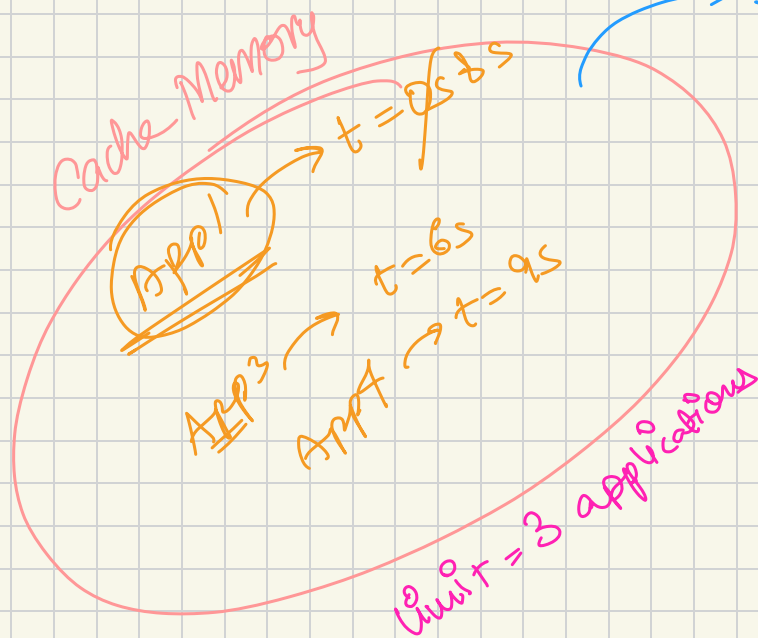 Cache Memory
App1 → t = 0s 8s
App3 → t = 6s
App4 → t = 9s
Limit = 3 applications